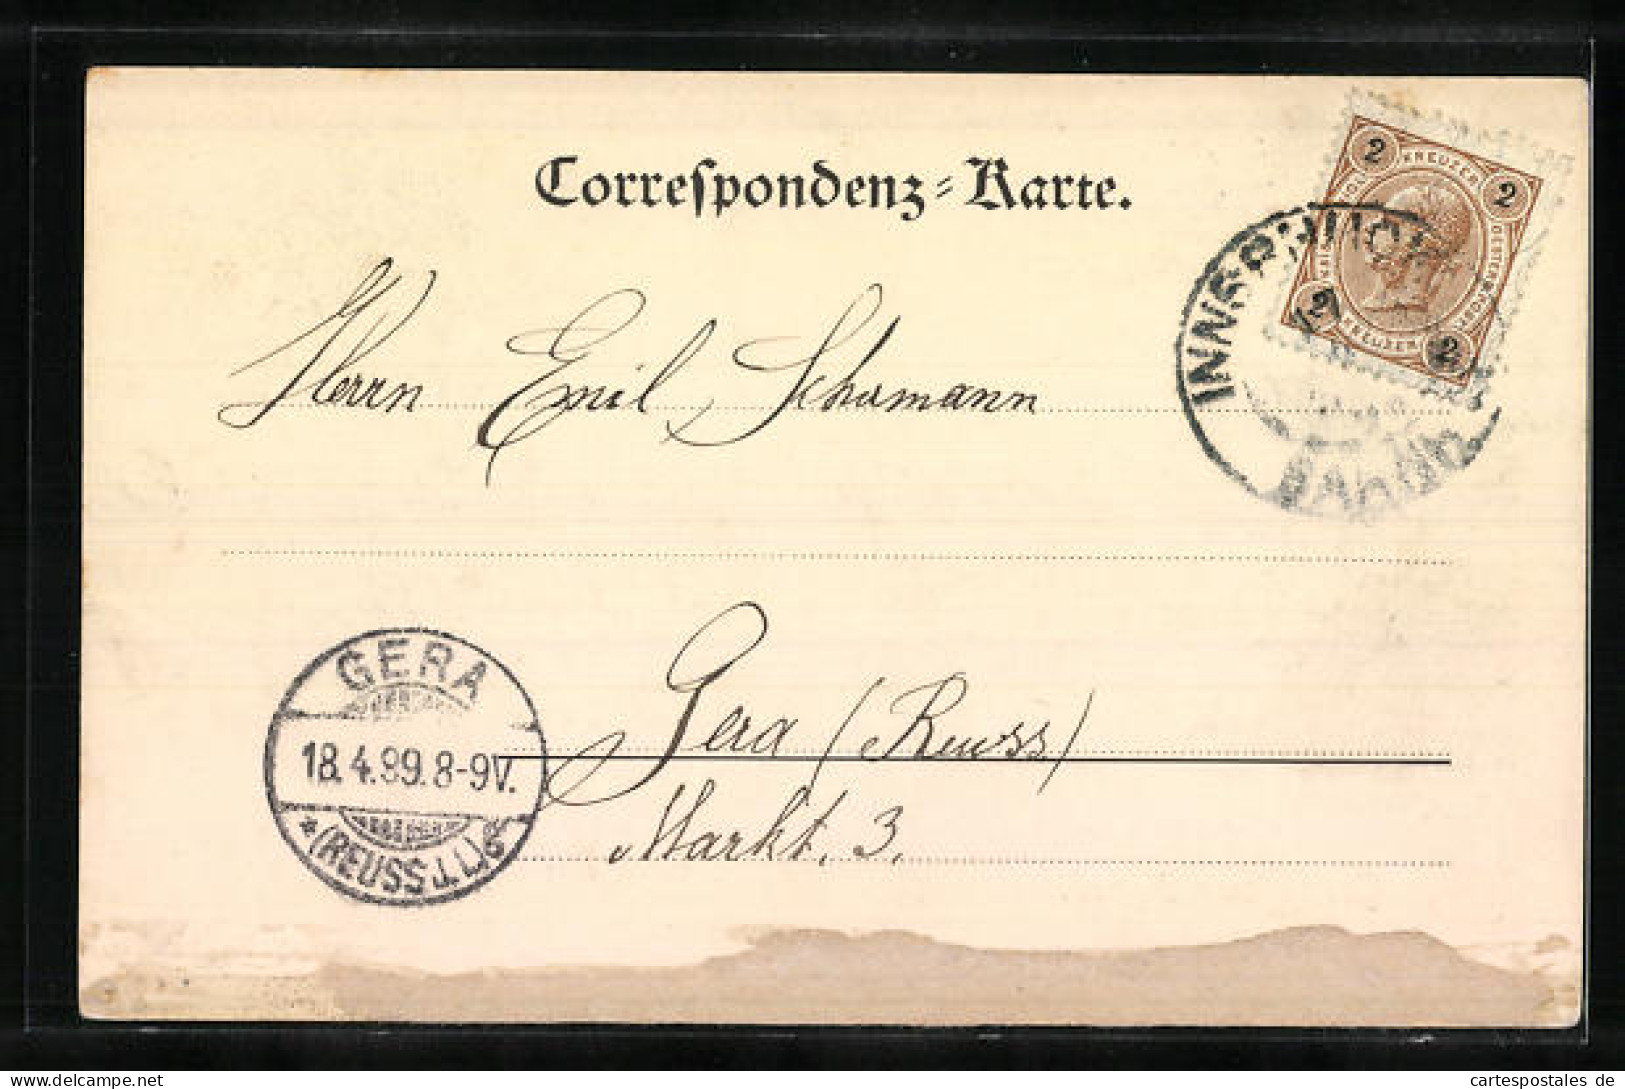 Correſpondenz=Karte.
2 KREUZER 2
2 KREUZER 2
INNSBRUCK
Herrn Emil Schumann
GERA
18.4.99.8-9V.
* (REUSS J.L.)
Gera (Reuss)
Markt. 3.
cartespostales de